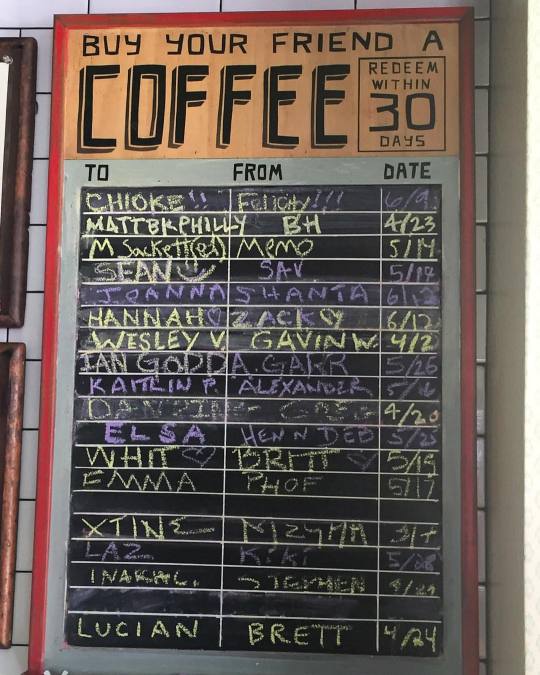 BUY YOUR FRIEND A
COFFEE
REDEEM
WITHIN
30
DAYS
TO FROM DATE
CHIOKE!! Felicity!!! 6/9
MATTBRPHILLY BH 4/23
M Sackett(ed) MEMO 5/14
SEAN SAV 5/14
JOANNA SHANTA
HANNAH♡ ZACK♡ 6/12
WESLEY V. GAVIN W. 4/2
IAN GODDA. 5/26
KAITLIN P. ALEXANDER 5/16
4/20
ELSA HEN N DEB
WHIT♡ BRITT♡ 5/15
EMMA PHOF 5/17
XTINE
LAZ KiKi 5/28
STEPHEN 4/21
LUCIAN BRETT 4/24